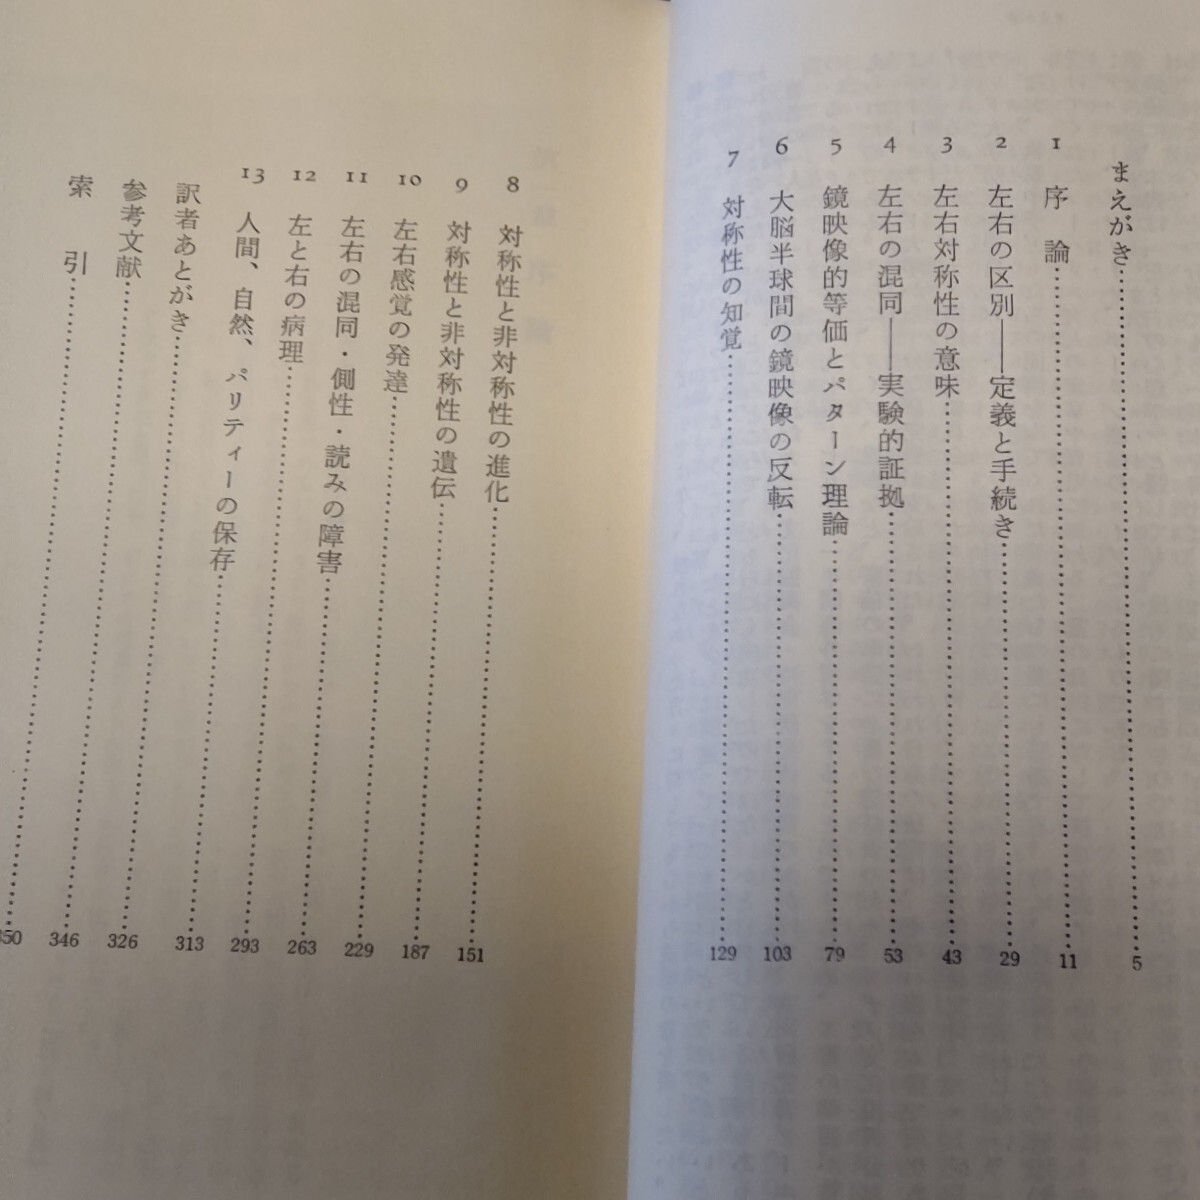 まえがき……5
1 序論……11
2 左右の区別――定義と手続き……29
3 左右対称性の意味……43
4 左右の混同――実験的証拠……53
5 鏡映像的等価とパターン理論……79
6 大脳半球間の鏡映像の反転……103
7 対称性の知覚……129
8 対称性と非対称性の進化……151
9 対称性と非対称性の遺伝……187
10 左右感覚の発達……229
11 左右の混同・側性・読みの障害……263
12 左と右の病理……293
13 人間、自然、パリティーの保存……313
訳者あとがき……326
参考文献……346
索引……350